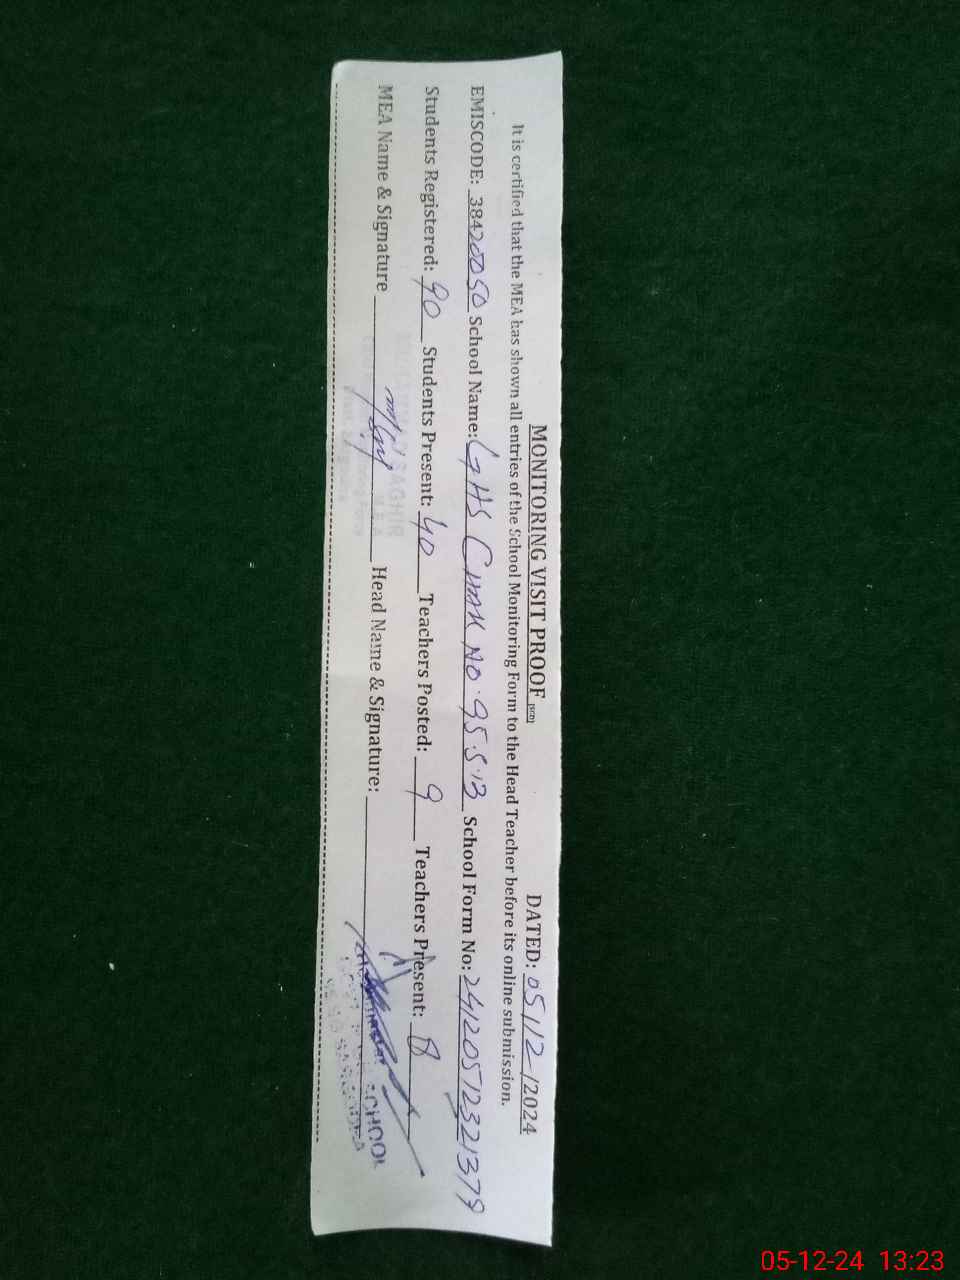 MONITORING VISIT PROOF DATED: 05/12/2024
It is certified that the MEA has shown all entries of the School Monitoring Form to the Head Teacher before its online submission.
EMISCODE: 38420050 School Name: GHS CHAK NO. 95.S.B School Form No: 241205123213,79
Students Registered: 90 Students Present: 40 Teachers Posted: 9 Teachers Present: 8
MEA Name & Signature Head Name & Signature:
SAGHIR
M.E.A
SCHOOL
05-12-24 13:23